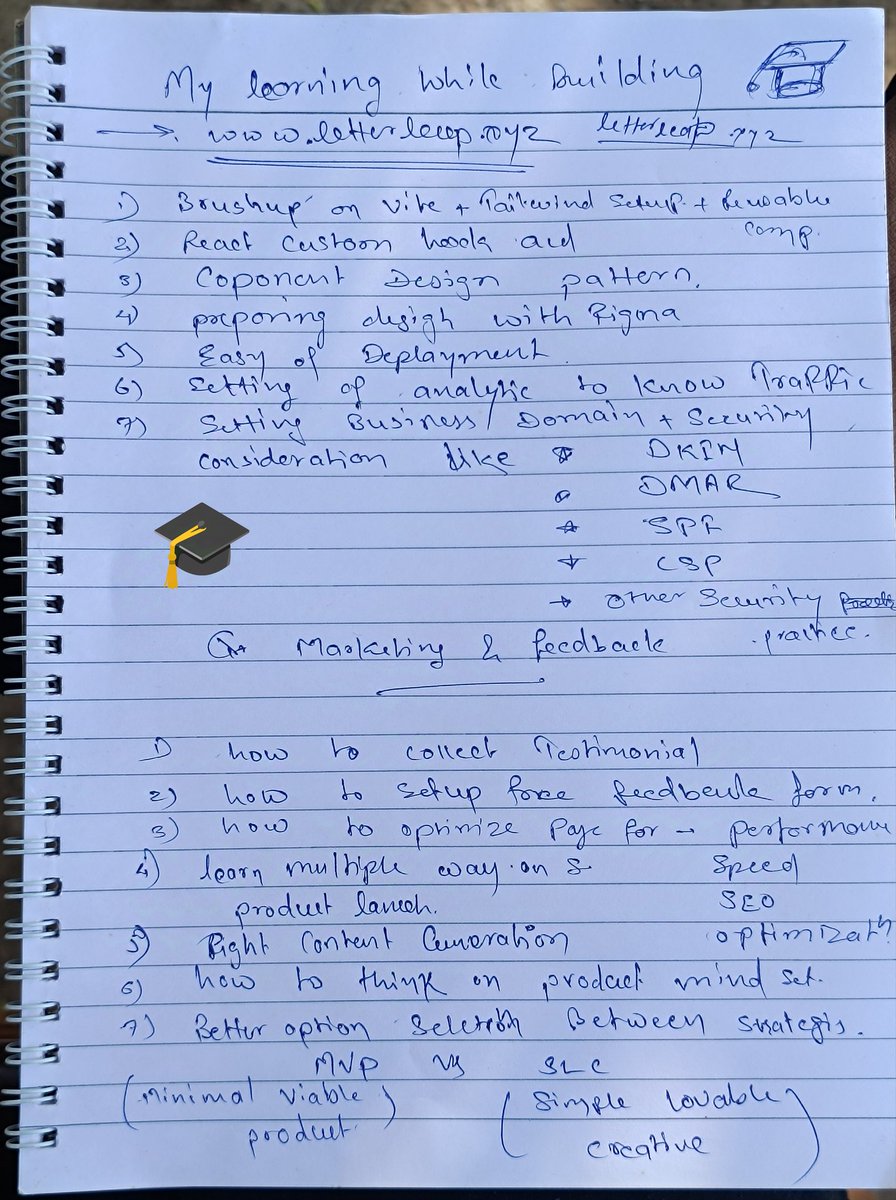 My learning while Building
www.letterleap.xyz letterleap.xyz
1) Brushup on Vite + Tailwind Setup + Reusable comp.
2) React Custom hooks and
3) Coponent Design pattern.
4) preparing desigh with Figma
5) Easy of Deplayment
6) Setting of analytic to know Traffic
7) Setting Business / Domain + Security
consideration like * DKIM
DMAR
* SPF
* CSP
* other Security practice.
Marketing & feedback
1) how to collect Testimonial
2) how to setup free feedback form.
3) how to optimize page for → performance
4) learn multiple way on & Speed
product launch. SEO
5) Right Content Generation optimizatn
6) how to think on product mind set.
7) Better option Selection Between strategis.
MVP vs SLC
(minimal viable product) (Simple lovable creative)